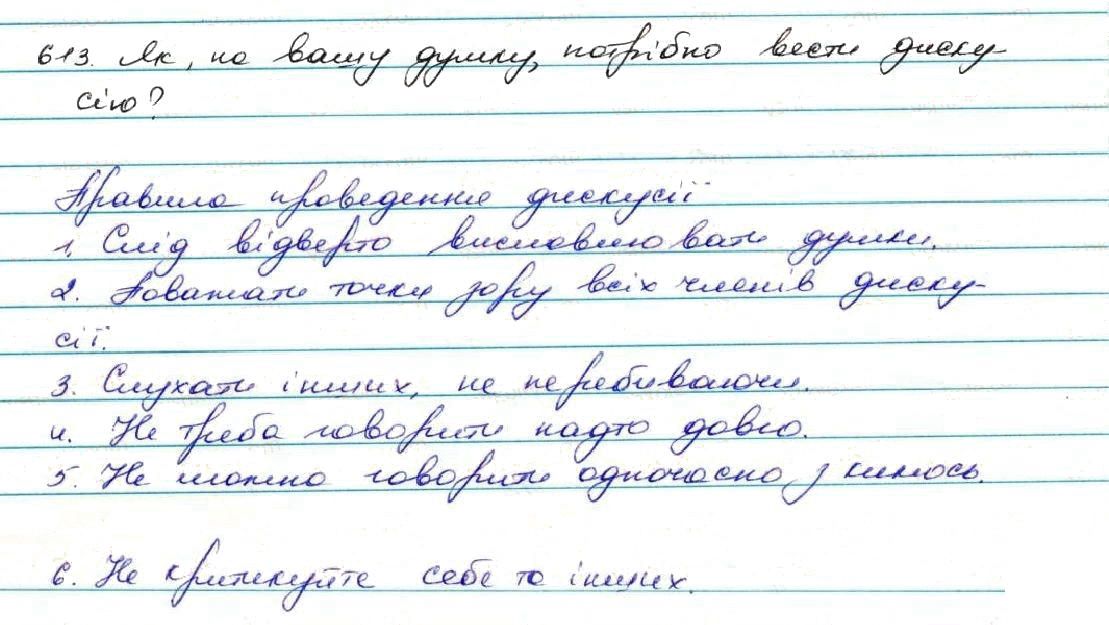 613. Як, на вашу думку, потрібно вести диску-
сію?
Правила проведення дискусії
1. Слід відверто висловлювати думки.
2. Поважати точки зору всіх членів диску-
сії.
3. Слухати інших, не перебиваючи.
4. Не треба говорити надто довго.
5. Не можна говорити одночасно з кимось.
6. Не критикуйте себе та інших.